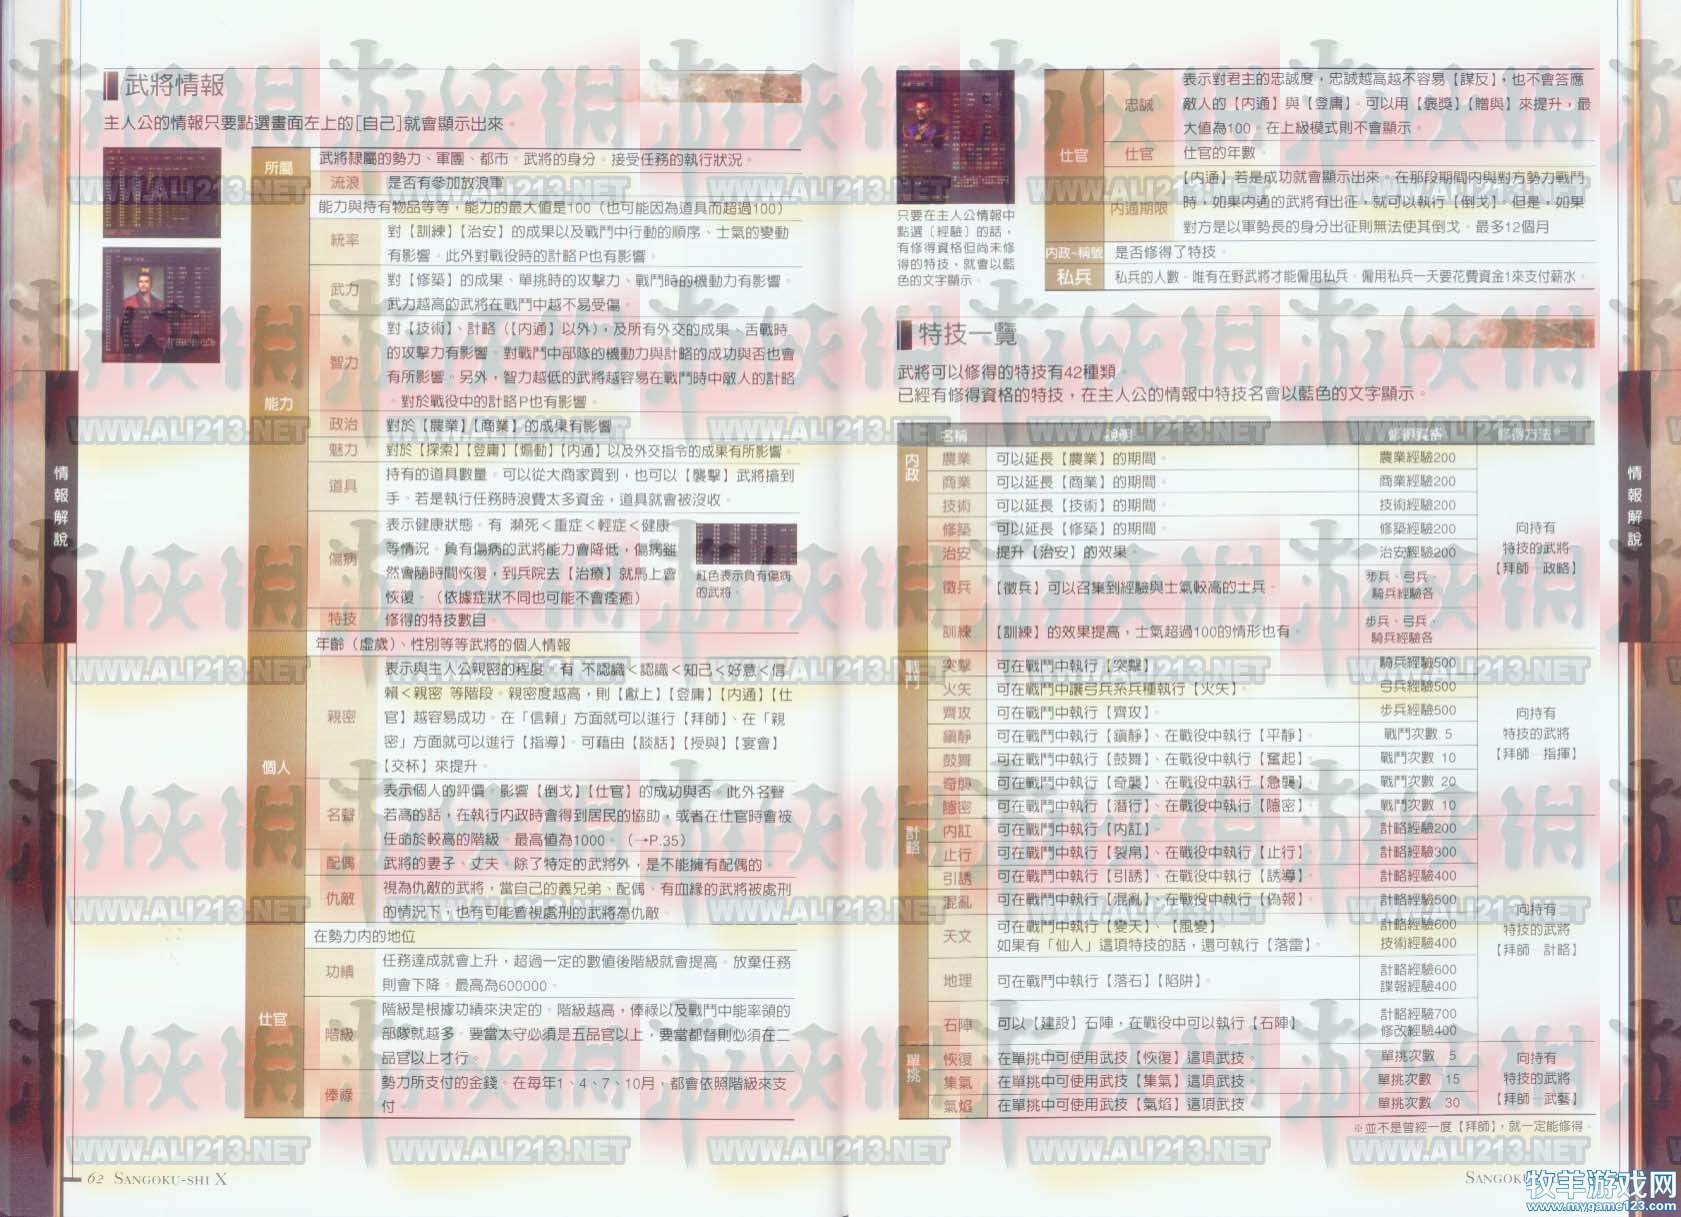 武將情報
主人公的情報只要點選畫面左上的[自己]就會顯示出來。
所屬
武將隸屬的勢力、軍團、都市。武將的身分。接受任務的執行狀況。
流浪
是否有參加放浪軍
能力
能力與持有物品等等，能力的最大值是100（也可能因為道具而超過100）
統率
對【訓練】【治安】的成果以及戰鬥中行動的順序、士氣的變動
有影響。此外對戰役時的計略P也有影響。
武力
對【修築】的成果、單挑時的攻擊力、戰鬥時的機動力有影響。
武力越高的武將在戰鬥中越不易受傷。
智力
對【技術】、計略（【內通】以外），及所有外交的成果、舌戰時
的攻擊力有影響。對戰鬥中部隊的機動力與計略的成功與否也會
有所影響。另外，智力越低的武將越容易在戰鬥時中敵人的計略
。對於戰役中的計略P也有影響。
政治
對於【農業】【商業】的成果有影響
魅力
對於【探索】【登庸】【煽動】【內通】以及外交指令的成果有所影響。
道具
持有的道具數量。可以從大商家買到，也可以【襲擊】武將搶到
手。若是執行任務時浪費太多資金，道具就會被沒收。
傷病
表示健康狀態。有 瀕死＜重症＜輕症＜健康
等情況。負有傷病的武將能力會降低，傷病雖
然會隨時間恢復，到兵院去【治療】就馬上會
恢復。（依據症狀不同也可能不會痊癒）
紅色表示負有傷病
的武將。
特技
修得的特技數目。
個人
年齡（虛歲）、性別等等武將的個人情報
親密
表示與主人公親密的程度。有 不認識＜認識＜知己＜好意＜信
賴＜親密 等階段。親密度越高，則【獻上】【登庸】【內通】【仕
官】越容易成功。在「信賴」方面就可以進行【拜師】、在「親
密」方面就可以進行【指導】。可藉由【談話】【授與】【宴會】
【交杯】來提升。
名聲
表示個人的評價。影響【倒戈】【仕官】的成功與否。此外名聲
若高的話，在執行內政時會得到居民的協助，或者在仕官時會被
任命於較高的階級。最高值為1000。（→P.35）
配偶
武將的妻子、丈夫。除了特定的武將外，是不能擁有配偶的。
仇敵
視為仇敵的武將，當自己的義兄弟、配偶、有血緣的武將被處刑
的情況下，也有可能會視處刑的武將為仇敵。
仕官
在勢力內的地位
功績
任務達成就會上升，超過一定的數值後階級就會提高。放棄任務
則會下降。最高為600000。
階級
階級是根據功績來決定的。階級越高，俸祿以及戰鬥中能率領的
部隊就越多。要當太守必須是五品官以上，要當都督則必須在二
品官以上才行。
俸祿
勢力所支付的金錢。在每年1、4、7、10月，都會依照階級來支
付
情報解說
62 SANGOKU-SHI X
只要在主人公情報中
點選〔經驗〕的話，
有修得資格但尚未修
得的特技，就會以藍
色的文字顯示。
仕官
忠誠
表示對君主的忠誠度，忠誠越高越不容易【謀反】，也不會答應
敵人的【內通】與【登庸】。可以用【褒獎】【贈與】來提升，最
大值為100。在上級模式則不會顯示。
仕官
仕官的年數。
內通期限
【內通】若是成功就會顯示出來。在那段期間內與對方勢力戰鬥
時，如果內通的武將有出征，就可以執行【倒戈】。但是，如果
對方是以軍勢長的身分出征則無法使其倒戈。最多12個月
內政~稱號
是否修得了特技。
私兵
私兵的人數。唯有在野武將才能僱用私兵。僱用私兵一天要花費資金1來支付薪水。
特技一覽
武將可以修得的特技有42種類。
已經有修得資格的特技，在主人公的情報中特技名會以藍色的文字顯示。
名稱 說明 修得資格 修得方法
內政
農業 可以延長【農業】的期間。 農業經驗200
商業 可以延長【商業】的期間。 商業經驗200
技術 可以延長【技術】的期間。 技術經驗200
修築 可以延長【修築】的期間。 修築經驗200
治安 提升【治安】的效果。 治安經驗200
徵兵 【徵兵】可以召集到經驗與士氣較高的士兵。 步兵、弓兵、
騎兵經驗各
訓練 【訓練】的效果提高，士氣超過100的情形也有。 步兵、弓兵、
騎兵經驗各
向持有
特技的武將
【拜師 政略】
戰鬥
突擊 可在戰鬥中執行【突擊】 騎兵經驗500
火矢 可在戰鬥中讓弓兵系兵種執行【火矢】。 弓兵經驗500
齊攻 可在戰鬥中執行【齊攻】。 步兵經驗500
鎮靜 可在戰鬥中執行【鎮靜】、在戰役中執行【平靜】。 戰鬥次數 5
鼓舞 可在戰鬥中執行【鼓舞】、在戰役中執行【奮起】。 戰鬥次數 10
奇襲 可在戰鬥中執行【奇襲】、在戰役中執行【急襲】。 戰鬥次數 20
隱密 可在戰鬥中執行【潛行】、在戰役中執行【隱密】。 戰鬥次數 10
向持有
特技的武將
【拜師 指揮】
計略
內訌 可在戰鬥中執行【內訌】 計略經驗200
止行 可在戰鬥中執行【裂帛】、在戰役中執行【止行】。 計略經驗300
引誘 可在戰鬥中執行【引誘】、在戰役中執行【誘導】。 計略經驗400
混亂 可在戰鬥中執行【混亂】、在戰役中執行【偽報】。 計略經驗500
天文 可在戰鬥中執行【變天】、【風變】 計略經驗600
如果有「仙人」這項特技的話，還可執行【落雷】。 技術經驗400
地理 可在戰鬥中執行【落石】【陷阱】。 計略經驗600
諜報經驗400
石陣 可以【建設】石陣，在戰役中可以執行【石陣】 計略經驗700
修改經驗400
向持有
特技的武將
【拜師 計略】
單挑
恢復 在單挑中可使用武技【恢復】這項武技。 單挑次數 5
集氣 在單挑中可使用武技【集氣】這項武技。 單挑次數 15
氣焰 在單挑中可使用武技【氣焰】這項武技 單挑次數 30
向持有
特技的武將
【拜師 武藝】
※並不是曾經一度【拜師】，就一定能修得。
情報解說
SANGOKU
游俠網
WWW.ALI213.NET
牧羊游戏网
www.mygame123.com